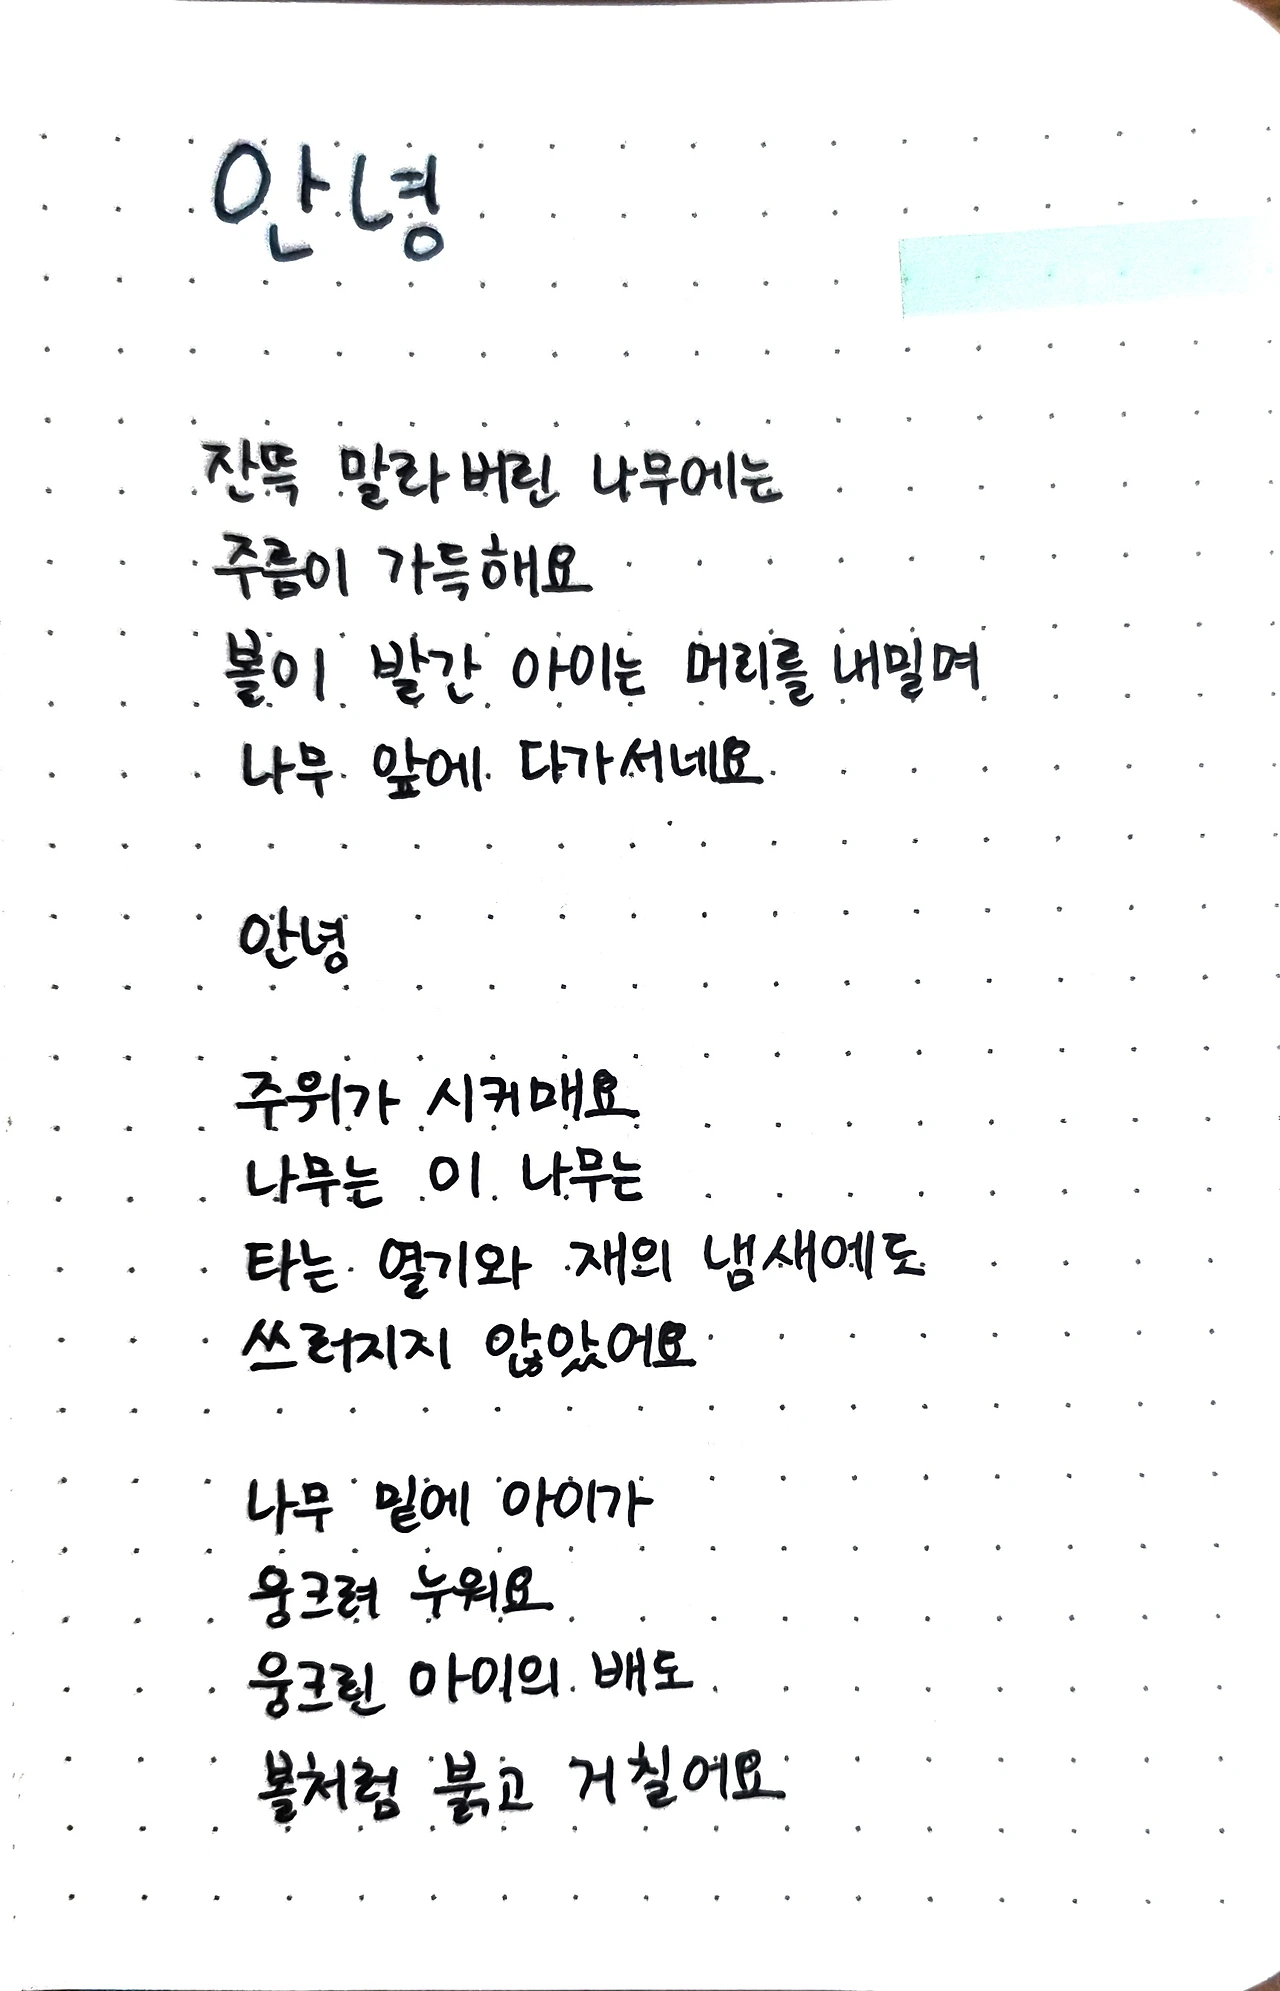 안녕
잔뜩 말라버린 나무에는
주름이 가득해요
볼이 발간 아이는 머리를 내밀며
나무 앞에 다가서네요
안녕
주위가 시커매요
나무는 이 나무는
타는 열기와 재의 냄새에도
쓰러지지 않았어요
나무 밑에 아이가
웅크려 누워요
웅크린 아이의 배도
볼처럼 붉고 거칠어요